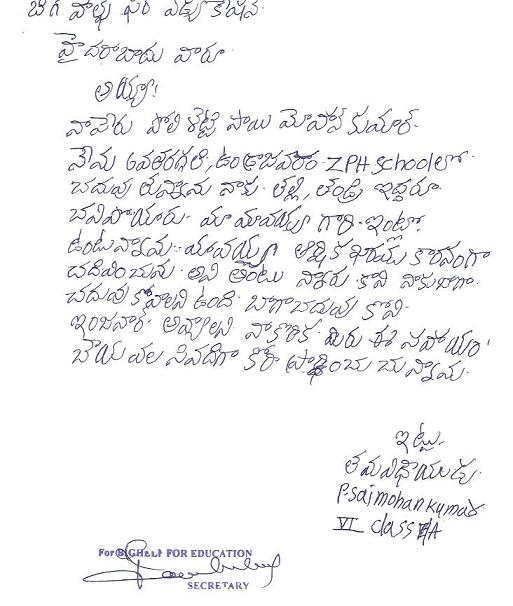 బిగ్ హెల్ప్ ఫర్ ఎడ్యుకేషన్.
హైదరాబాదు వారు
అయ్యా!
నాపేరు పోలిశెట్టి సాయి మోహన్ కుమార్.
నేను 6వతరగతి, ZPH School లో
చదువు తున్నాను నాకు. తల్లి, తండ్రి ఇద్దరూ
చనిపోయారు. మా మావయ్య గారి ఇంట్లో
ఉంటున్నాను. మావయ్య ఆర్థిక కారనంగా
చదివించను. అని అంటు న్నారు కాని నాకు బాగా
చదువు కోవాలని ఉంది. బాగా చదువు కోని
ఇంజనీర్ అవ్వాలని నాకోరిక. మీరు ఈ సహాయం
చేయ వల సినదిగా కోరి ప్రార్థించు చున్నాను.
ఇట్లు.
తమవిధేయుడు.
P. saimohan kumar
VI class A
For BIGHELP FOR EDUCATION
SECRETARY